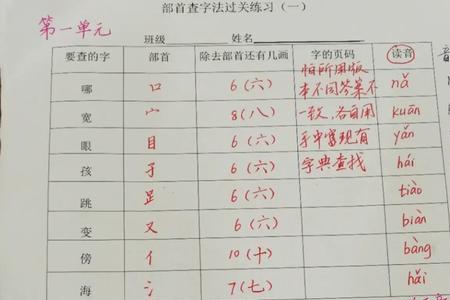 部首查字法过关练习（一）
第一单元
班级 姓名
要查的字 部首 除去部首还有几画 字的页码 读音
哪 口 6（六） 怕所用版本不同答案不 nǎ
宽 宀 8（八） 一致，各自用 kuān
眼 目 6（六） 手中富现有 yǎn
孩 子 6（六） 字典查找 hái
跳 足 6（六） tiào
变 又 6（六） biàn
傍 亻 10（十） bàng
海 氵 7（七） hǎi
音